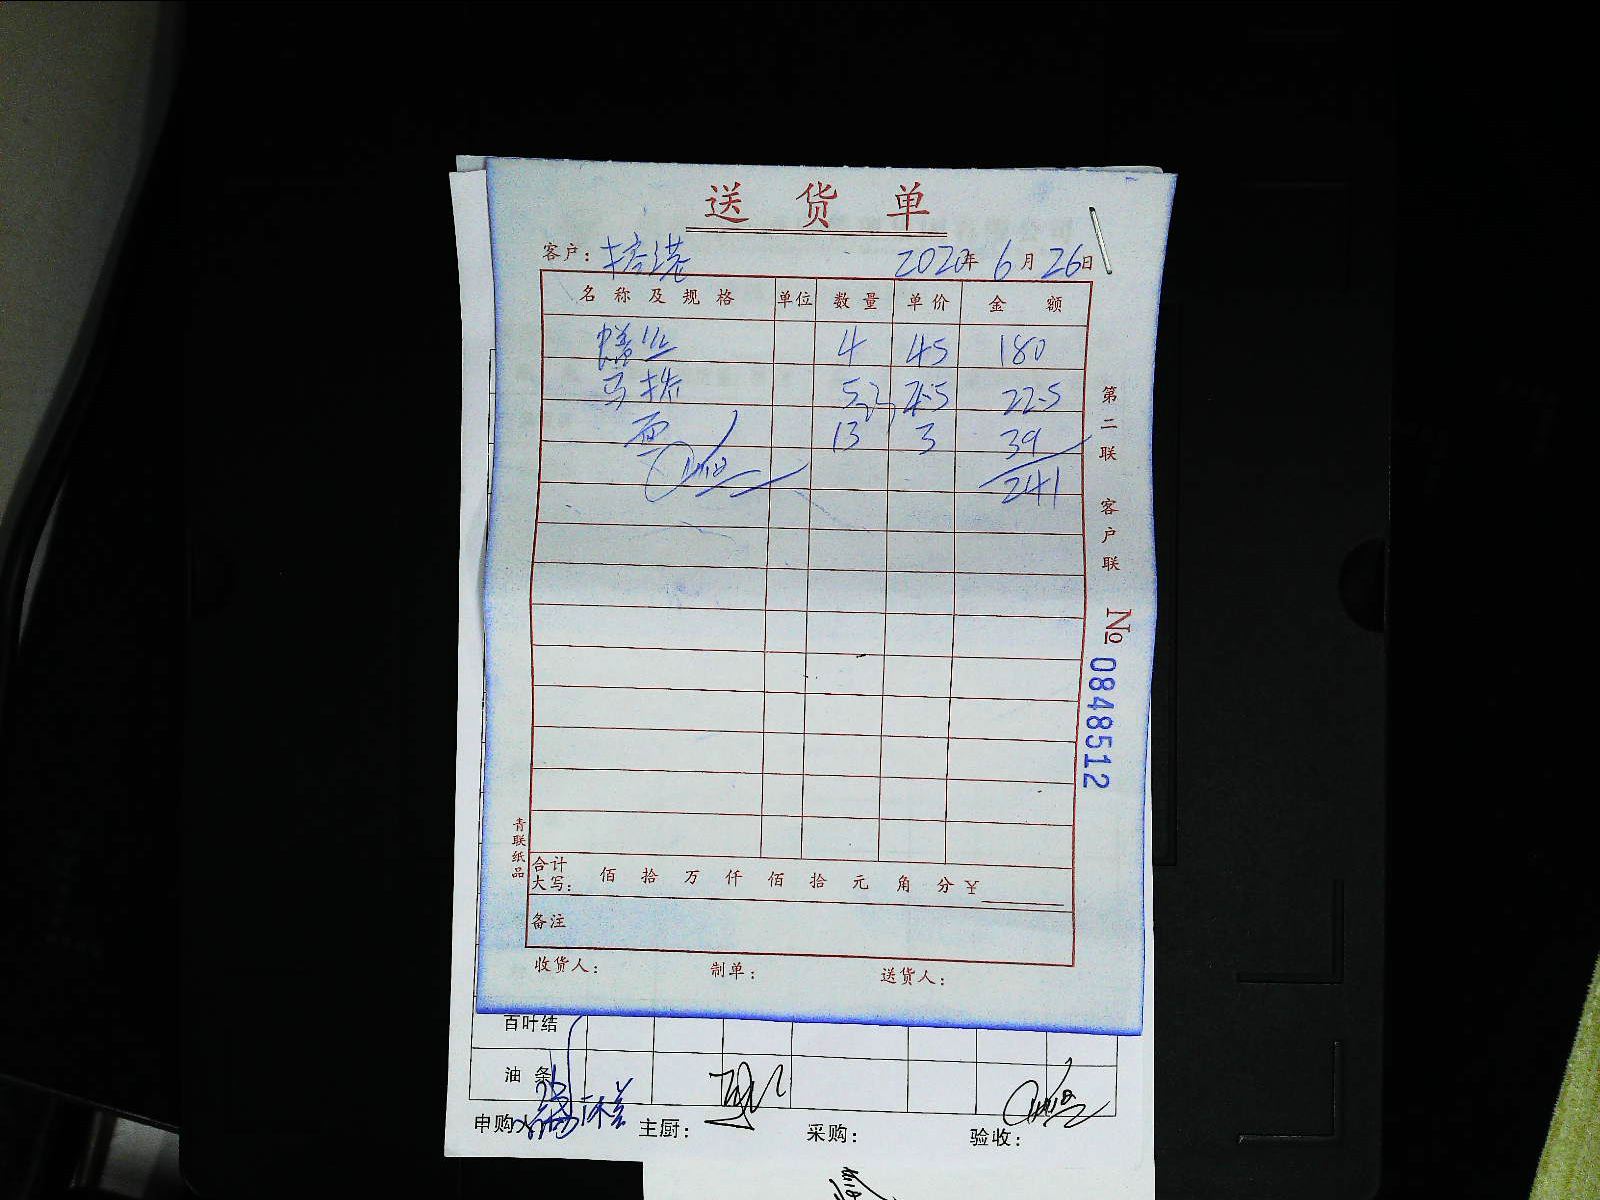 送货单
客户： 2020年6月26日
名称及规格 单位 数量 单价 金额
鳝丝 4 45 180
马桥 5 4.5 22.5
面 13 3 39
241
第二联 客户联
№ 0848512
青联纸品
合计大写： 佰 拾 万 仟 佰 拾 元 角 分 ¥
备注
收货人： 制单： 送货人：
百叶结
油条
申购人 主厨： 采购： 验收：